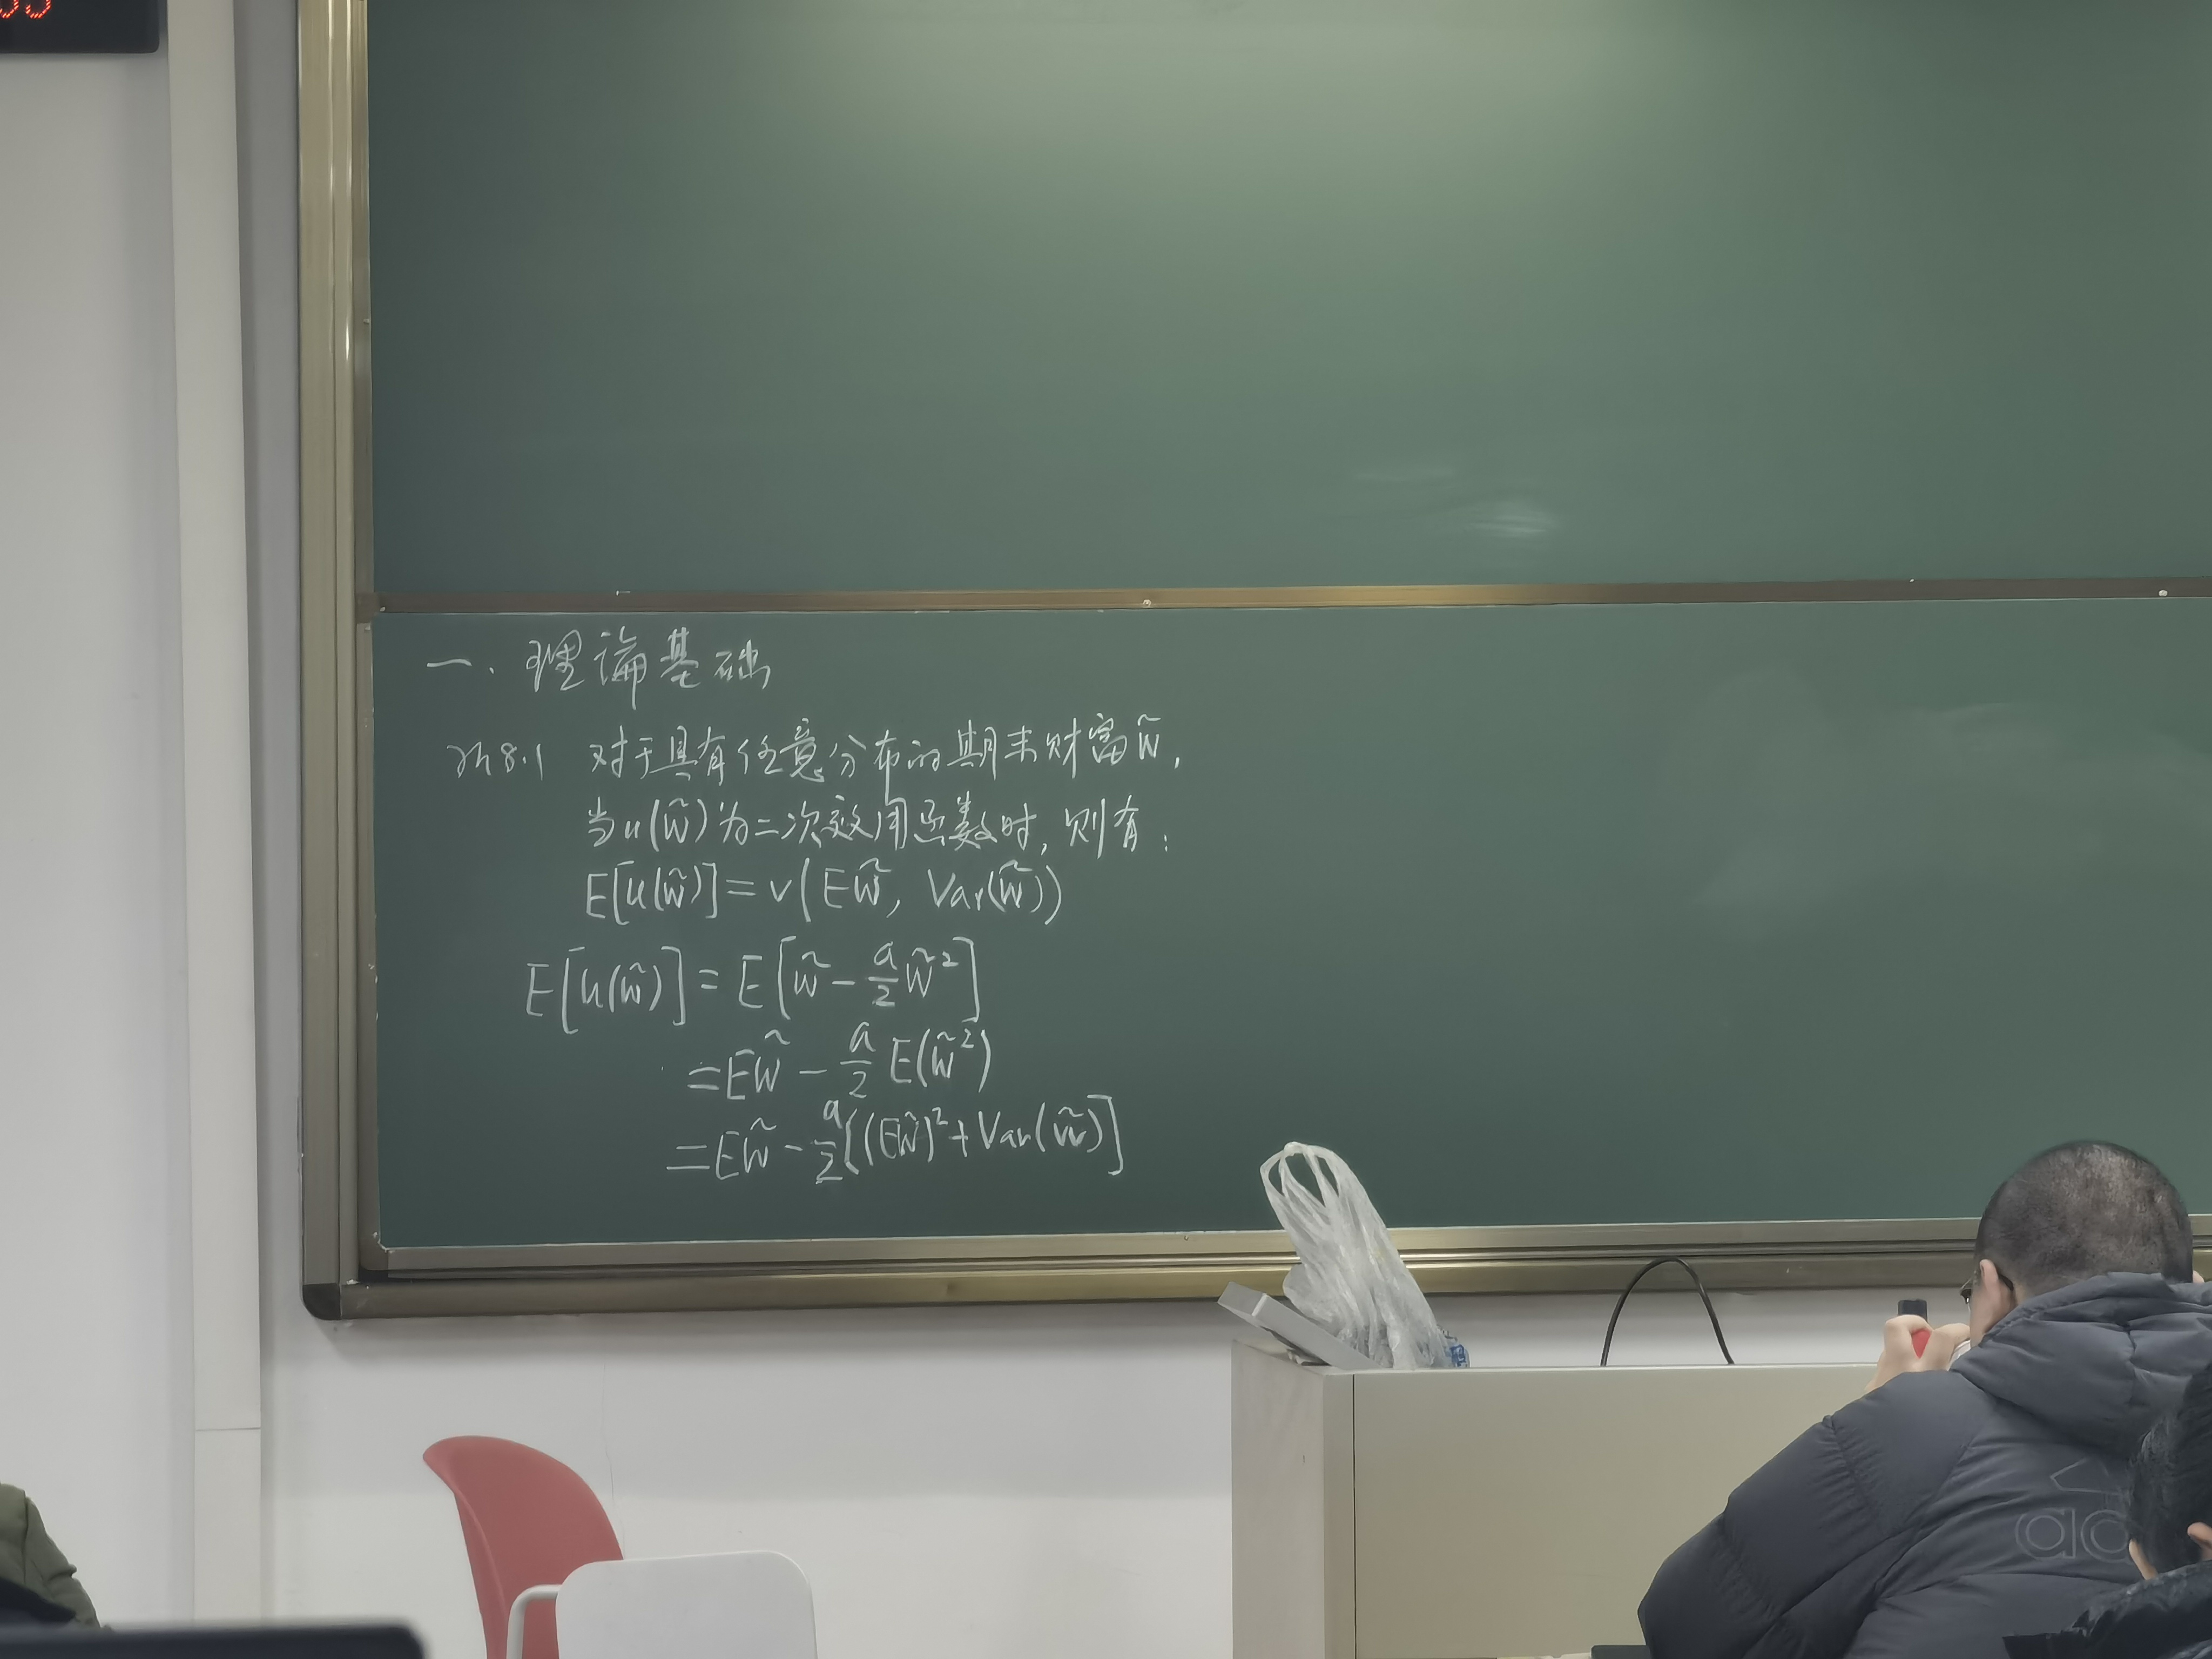 一. 理論基础
Th 8.1 对于具有任意分布的期末财富 W̃,
当 u(W̃) 为二次效用函数时, 则有:
E[u(W̃)] = v(EW̃, Var(W̃))
E[u(W̃)] = E[W̃ - a/2 W̃²]
= EW̃ - a/2 E(W̃²)
= EW̃ - a/2 [(EW̃)² + Var(W̃)]